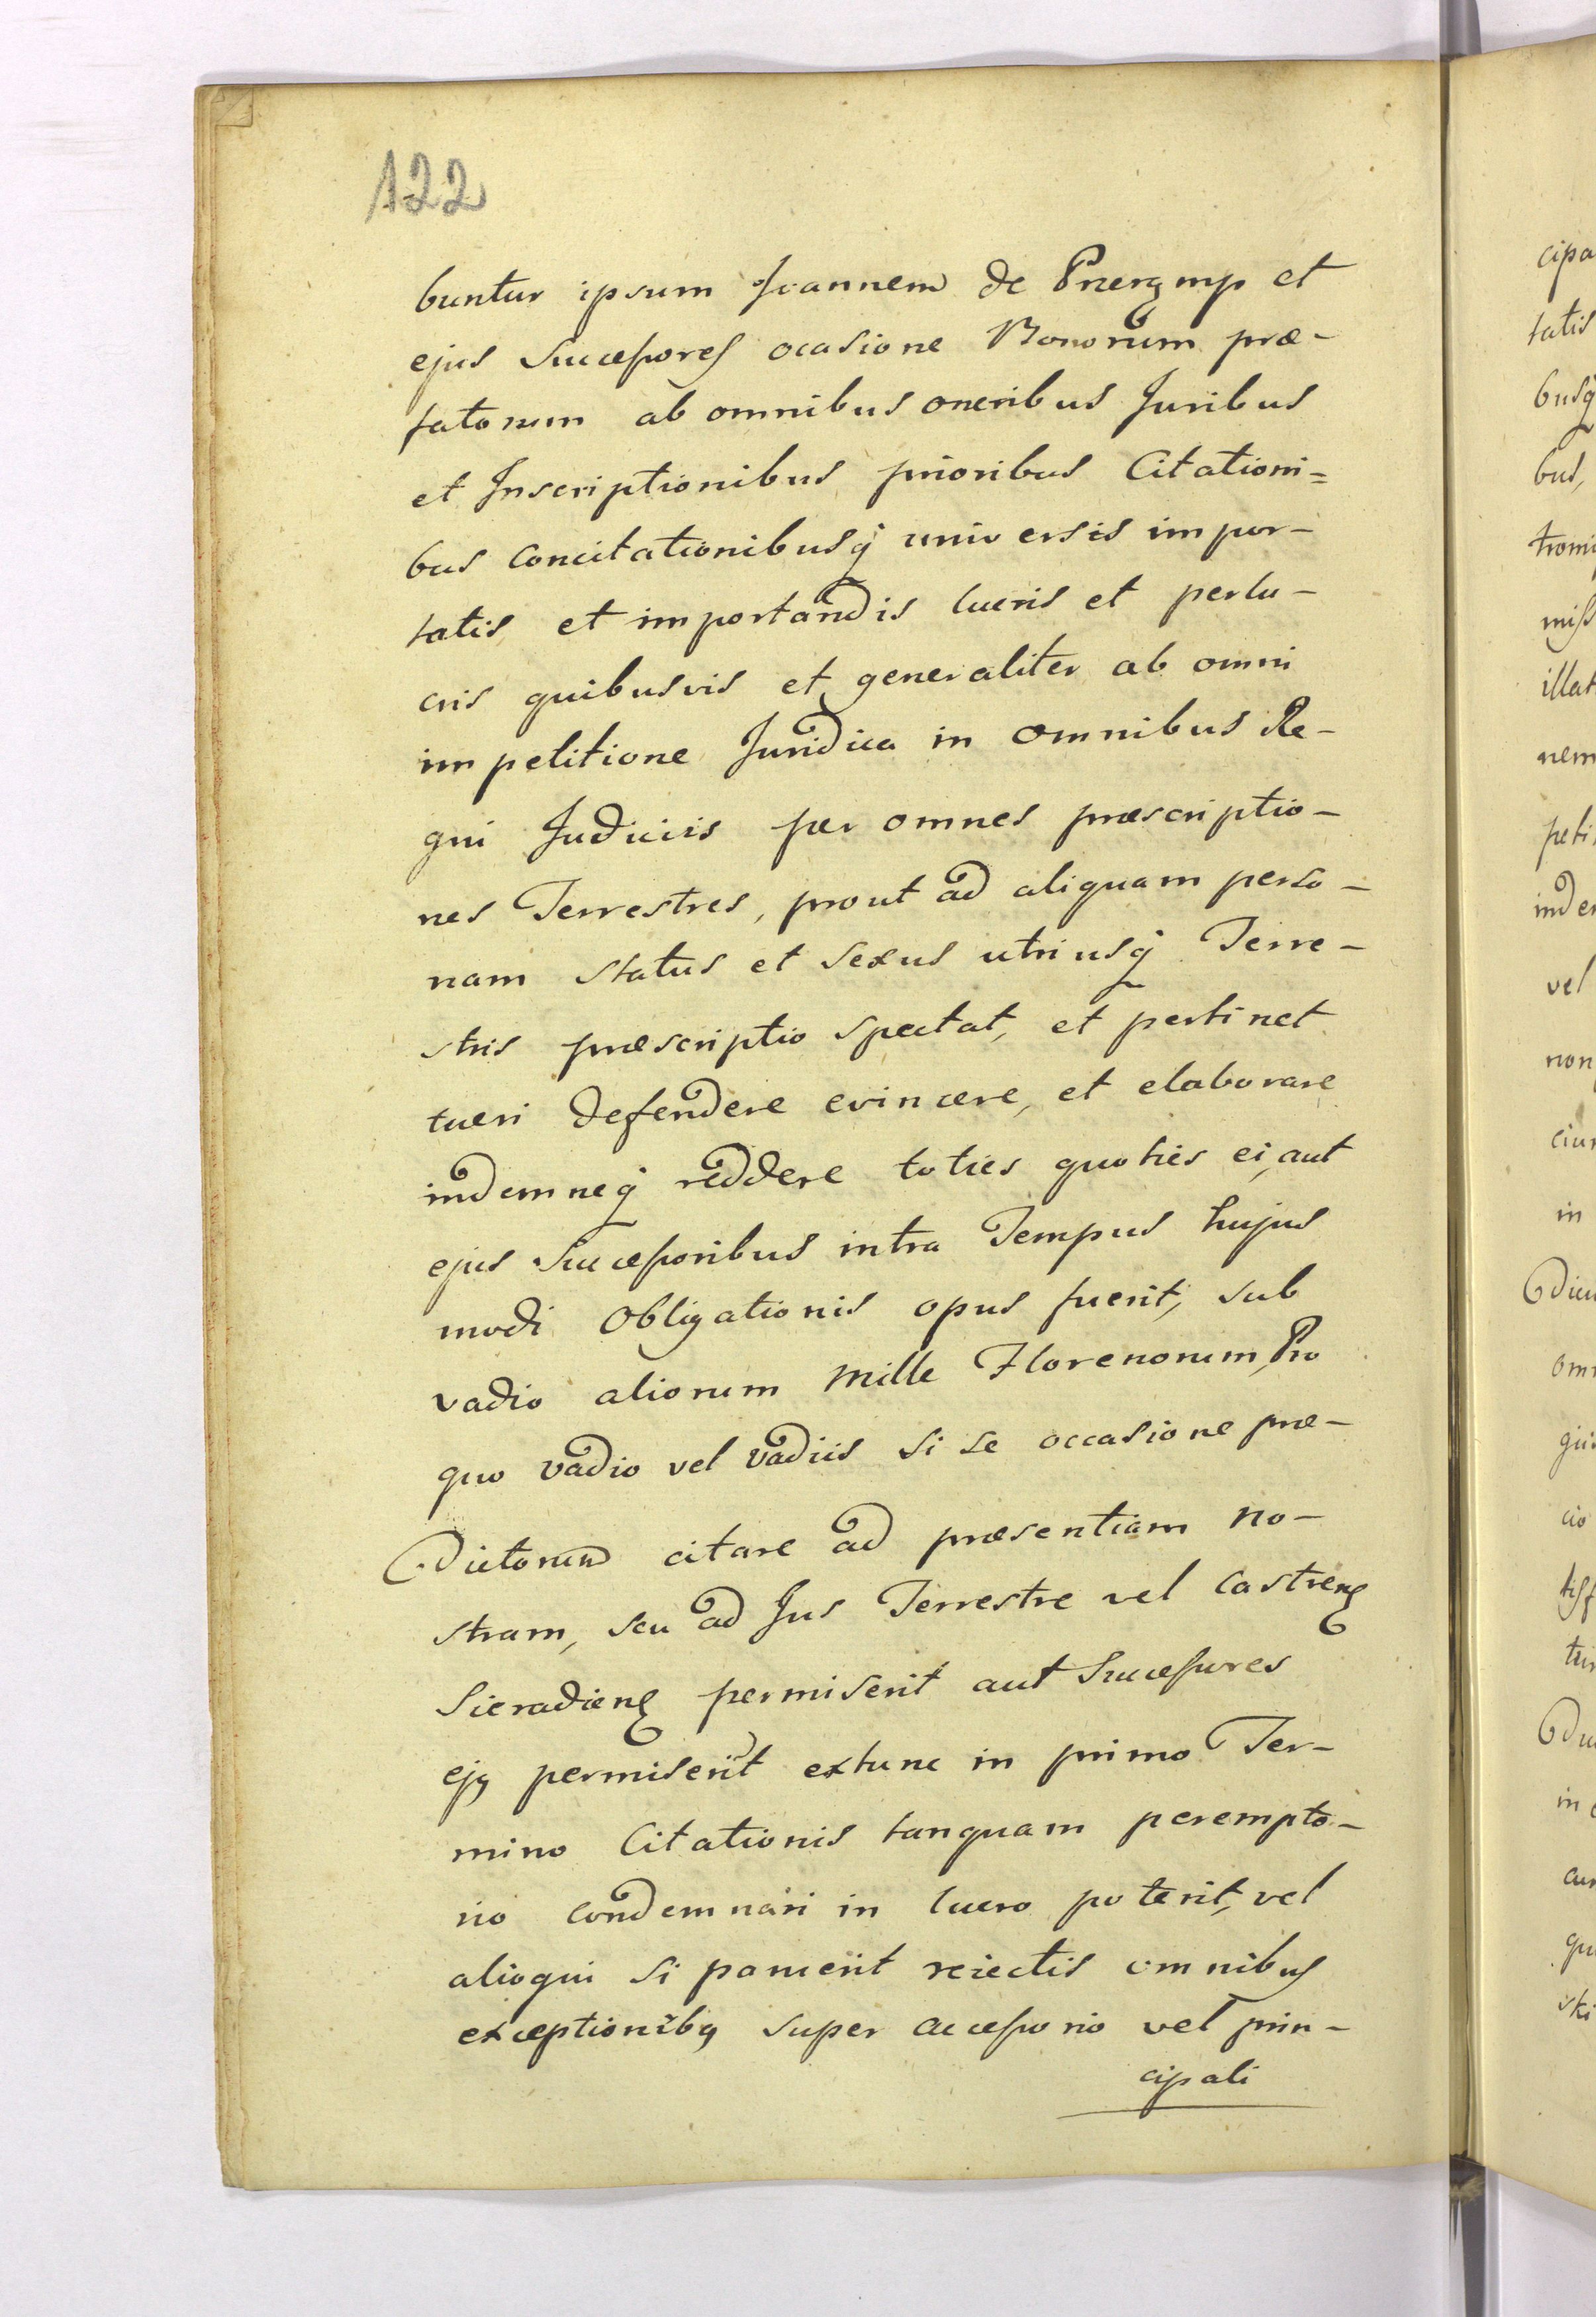 122
buntur ipsum Joannem de Przeremp et
ejus Successores ocasione Bonorum præ-
fatorum ab omnibus oneribus Juribus
et Inscriptionibus prioribus Citationi=
bus concitationibusq universis impor-
tatis et importandis lucris et perlu-
cris quibusvis et generaliter ab omni
impetitione Juridica in omnibus Re-
gni Judiciis per omnes præscriptio-
nes Terrestres, prout ad aliquam perso-
nam status et sexus utriusq Terre-
stris præscriptio spectat, et pertinet
tueri defendere evincere, et elaborare
indemneq reddere toties quoties ei, aut
ejus Successoribus intra Tempus hujus
modi Obligationis opus fuerit, sub
vadio aliorum Mille Florenorum, Pro
quo vadio vel vadiis si se occasione præ-
dictorum citare ad præsentiam no-
stram, seu ad Jus Terrestre vel Castrenę
Sieradienę permiserit aut Successores
ejq permiserit extunc in primo Ter-
mino Citationis tanquam perempto-
rio condemnari in lucro poterit, vel
alioqui si paruerit reiectis omnibus
exceptionibq super accessorio vel prin-
cipali
cipa
tatis
busq
bus,
miss
illat
nem
peti
inde
vel
non
in
omn
cio
in